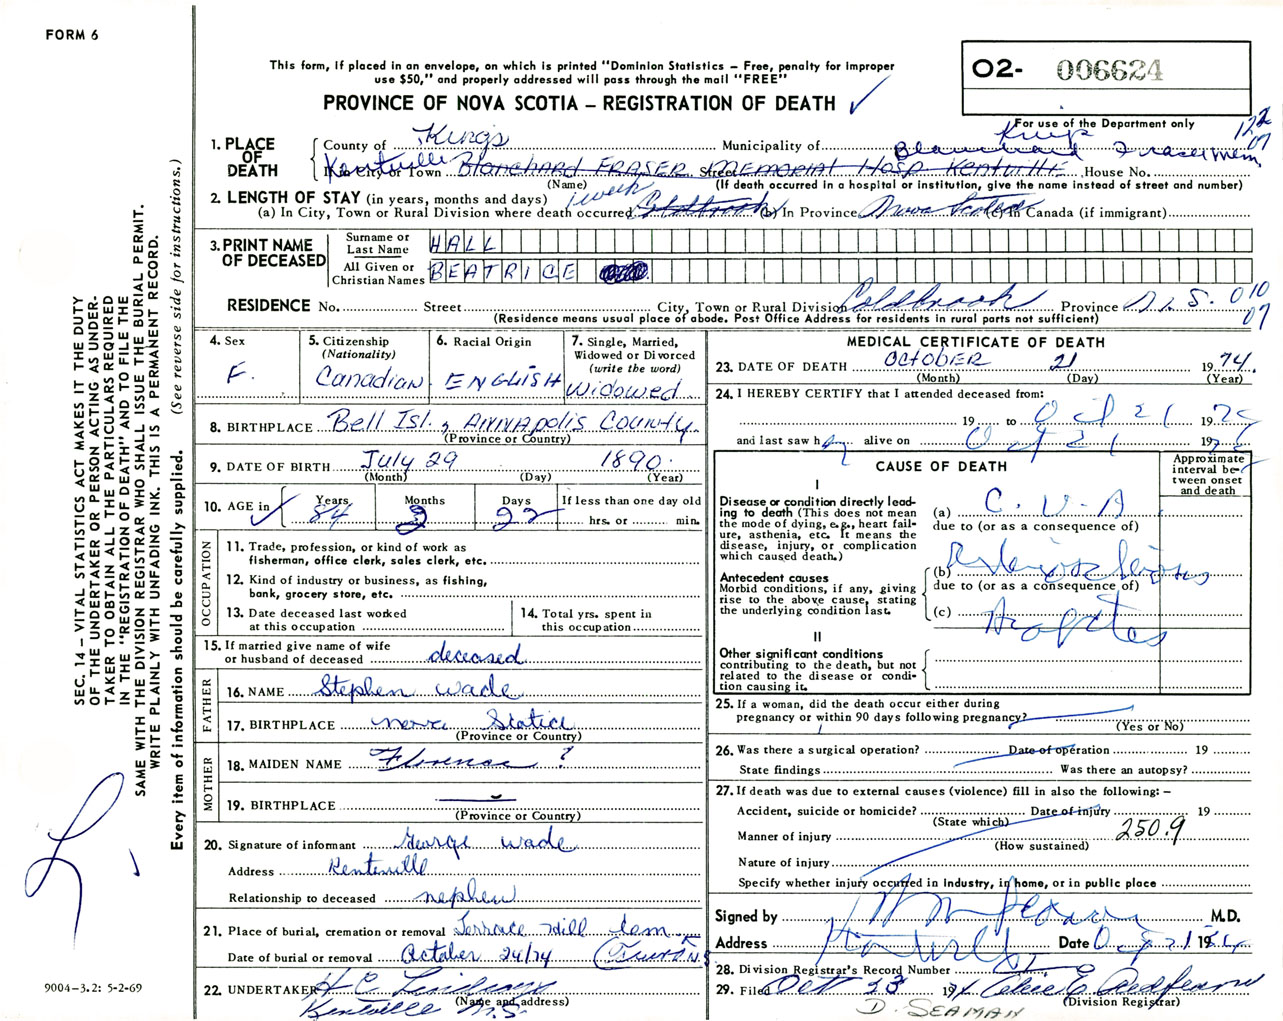 FORM 6
This form, if placed in an envelope, on which is printed "Dominion Statistics – Free, penalty for improper
use $50," and properly addressed will pass through the mail "FREE"
PROVINCE OF NOVA SCOTIA – REGISTRATION OF DEATH ✓
02- 006624
For use of the Department only
122
07
1. PLACE OF DEATH
County of Kings Municipality of Kings
Kentville In City or Town Blanchard FRASER Street MEMORIAL Hosp Kentville House No. Blanchard Fraser Mem
(Name) (If death occurred in a hospital or institution, give the name instead of street and number)
2. LENGTH OF STAY (in years, months and days) 1 week
(a) In City, Town or Rural Division where death occurred Coldbrook (b) In Province Nova Scotia (c) In Canada (if immigrant)
3. PRINT NAME OF DECEASED
Surname or Last Name HALL
All Given or Christian Names BEATRICE
RESIDENCE No. Street City, Town or Rural Division Coldbrook Province N.S. 010
07
(Residence means usual place of abode. Post Office Address for residents in rural parts not sufficient)
4. Sex F.
5. Citizenship (Nationality) Canadian
6. Racial Origin ENGLISH
7. Single, Married, Widowed or Divorced (write the word) Widowed
8. BIRTHPLACE Bell Isl., ANNAPOLIS COUNTY.
(Province or Country)
9. DATE OF BIRTH July 29 1890
(Month) (Day) (Year)
10. AGE in ✓ Years 84 Months 2 Days 22 If less than one day old
hrs. or min.
OCCUPATION
11. Trade, profession, or kind of work as
fisherman, office clerk, sales clerk, etc.
12. Kind of industry or business, as fishing,
bank, grocery store, etc.
13. Date deceased last worked
at this occupation
14. Total yrs. spent in
this occupation
15. If married give name of wife
or husband of deceased deceased
FATHER
16. NAME Stephen Wade
17. BIRTHPLACE Nova Scotia
(Province or Country)
MOTHER
18. MAIDEN NAME Florence ?
19. BIRTHPLACE
(Province or Country)
20. Signature of informant George Wade
Address Kentville
Relationship to deceased nephew
21. Place of burial, cremation or removal Terrace Hill Cem
Date of burial or removal October 24/74 N.S.
22. UNDERTAKER H C Lindsay
(Name and address)
Kentville N.S.
MEDICAL CERTIFICATE OF DEATH
23. DATE OF DEATH OCTOBER 21 1974
(Month) (Day) (Year)
24. I HEREBY CERTIFY that I attended deceased from:
19 to Oct 21 1974
and last saw her alive on Oct 21 1974
CAUSE OF DEATH
Approximate interval between onset and death
I
Disease or condition directly leading to death (This does not mean the mode of dying, e.g., heart failure, asthenia, etc. It means the disease, injury, or complication which caused death.)
(a) C.V.A
due to (or as a consequence of)
Antecedent causes
Morbid conditions, if any, giving rise to the above cause, stating the underlying condition last.
(b)
due to (or as a consequence of)
(c)
II
Other significant conditions
contributing to the death, but not related to the disease or condition causing it.
25. If a woman, did the death occur either during
pregnancy or within 90 days following pregnancy?
(Yes or No)
26. Was there a surgical operation? Date of operation 19
State findings Was there an autopsy?
27. If death was due to external causes (violence) fill in also the following: –
Accident, suicide or homicide? Date of injury 19
(State which)
Manner of injury 250.9
(How sustained)
Nature of injury
Specify whether injury occurred in Industry, in home, or in public place
Signed by M.D.
Address Kentville Date Oct 21 19
28. Division Registrar's Record Number
29. Filed Oct 23 19
(Division Registrar)
D. SEAMAN
SEC. 14 – VITAL STATISTICS ACT MAKES IT THE DUTY
OF THE UNDERTAKER OR PERSON ACTING AS UNDER-
TAKER TO OBTAIN ALL THE PARTICULARS REQUIRED
IN THE "REGISTRATION OF DEATH" AND TO FILE THE
SAME WITH THE DIVISION REGISTRAR WHO SHALL ISSUE THE BURIAL PERMIT.
WRITE PLAINLY WITH UNFADING INK. THIS IS A PERMANENT RECORD.
Every item of information should be carefully supplied. (See reverse side for instructions.)
9004-3.2: 5-2-69